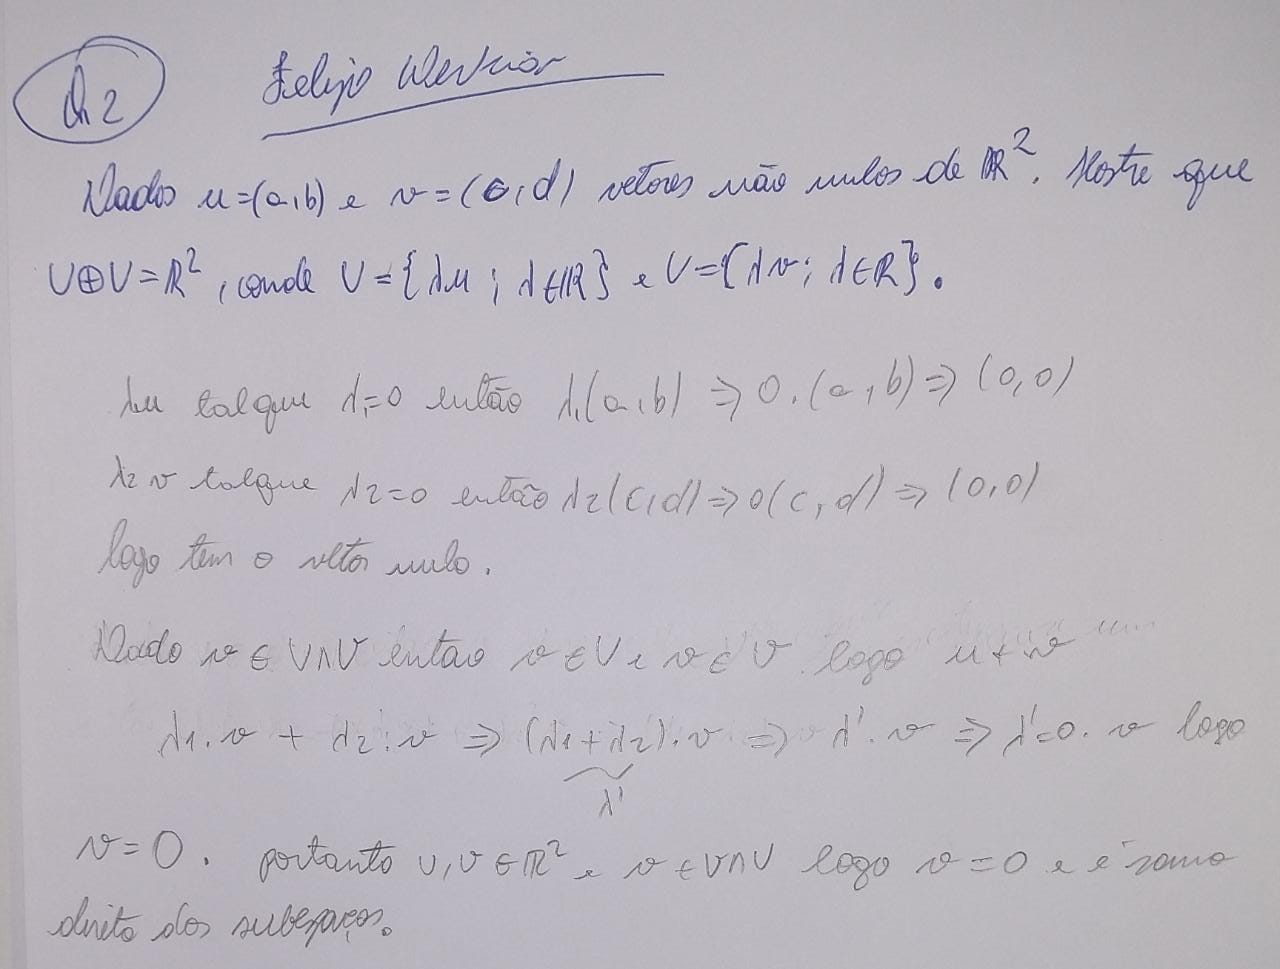 Q2 Felipe
Dados u=(a,b) e v=(c,d) vetores não nulos de ℝ². Mostre que
U⊕V=ℝ², onde U={λu; λ∈ℝ} e V={λv; λ∈ℝ}.
λu tal que λ₁=0 então λ₁(a,b) ⇒ 0.(a,b) ⇒ (0,0)
λ₂v tal que λ₂=0 então λ₂(c,d) ⇒ 0(c,d) ⇒ (0,0)
logo tem o vetor nulo.
Dado v ∈ U∩V então v ∈ U e v ∈ V logo u+v
λ₁.v + λ₂.v ⇒ (λ₁+λ₂).v ⇒ λ'.v ⇒ λ'=0.v logo
λ'
v=0. portanto U,V ∈ ℝ² e v ∈ U∩V logo v=0 e é soma
direta dos subespaços.